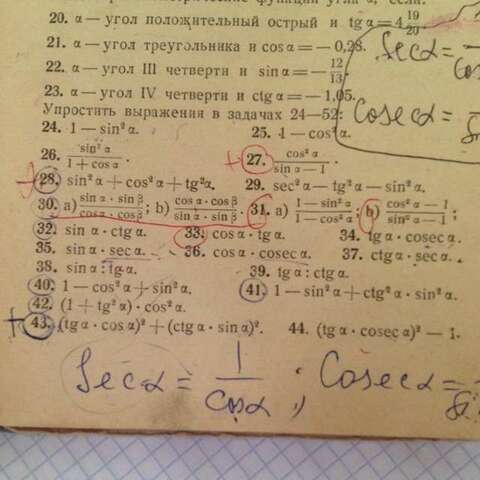 функции угла α, если:
20. α — угол положительный острый и tg α = 4 19/20
21. α — угол треугольника и cos α = — 0,28.
22. α — угол III четверти и sin α = — 12/13.
23. α — угол IV четверти и ctg α = — 1,05.
Упростить выражения в задачах 24—52:
24. 1 — sin² α. 25. 1 — cos² α.
26. sin² α / 1 + cos α. 27. cos² α / sin α — 1.
28. sin² α + cos² α + tg² α. 29. sec² α — tg² α — sin² α.
30. a) sin α · sin β / cos α · cos β; b) cos α · cos β / sin α · sin β. 31. a) 1 — sin² α / 1 — cos² α; b) cos² α — 1 / sin² α — 1;
32. sin α · ctg α. 33. cos α · tg α. 34. tg α · cosec α.
35. sin α · sec α. 36. cos α · cosec α. 37. ctg α · sec α.
38. sin α : tg α. 39. tg α : ctg α.
40. 1 — cos² α + sin² α. 41. 1 — sin² α + ctg² α · sin² α.
42. (1 + tg² α) · cos² α.
43. (tg α · cos α)² + (ctg α · sin α)². 44. (tg α · cosec α)² — 1.
Sec α =
cos
Cosec α =
Sec α = 1 / cos α, Cosec α =